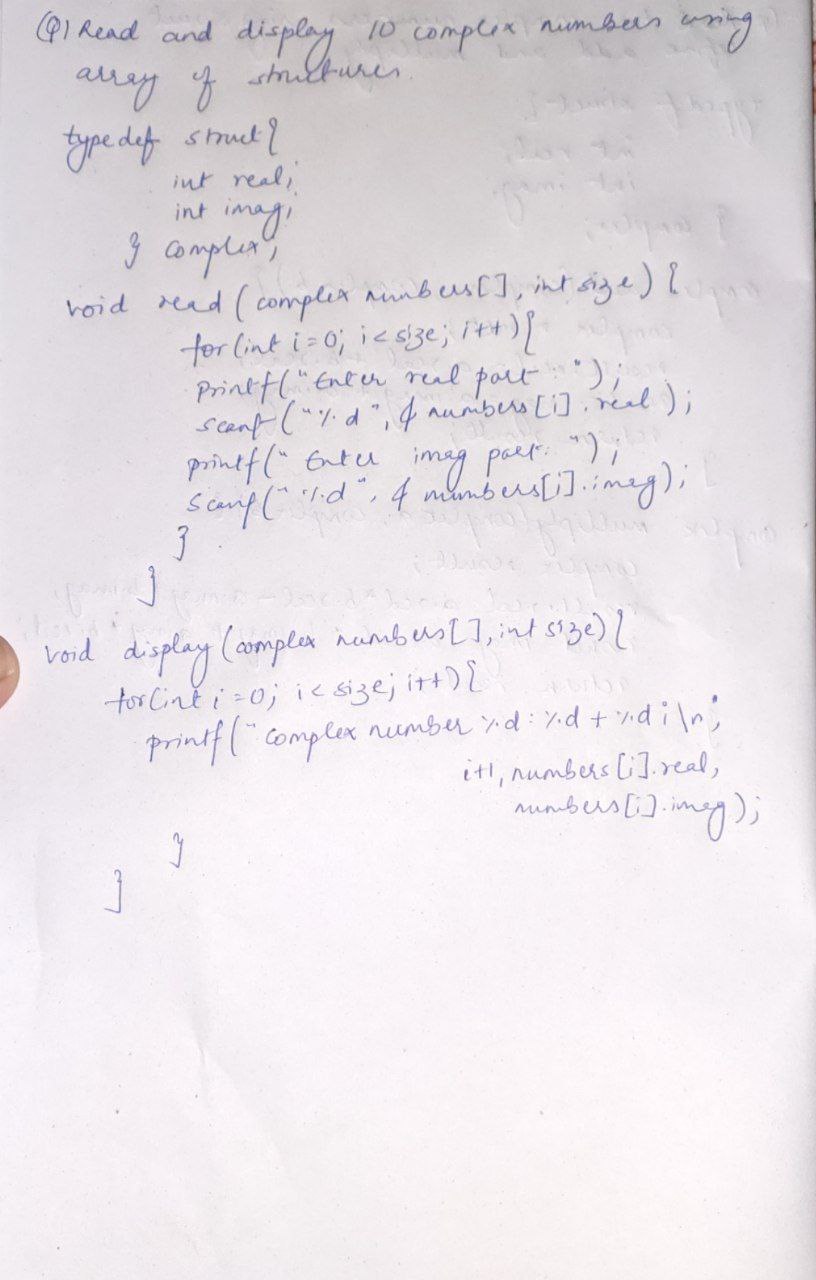 Q) Read and display 10 complex numbers using
array of structures.
typedef struct {
int real;
int imag;
} complex;
void read (complex numbers[], int size) {
for (int i=0; i<size; i++) {
printf("Enter real part ");
scanf ("%d", & numbers[i].real);
printf(" Enter imag part: ");
scanf("%d", & numbers[i].imag);
}
}
void display (complex numbers[], int size) {
for (int i=0; i<size; i++) {
printf("complex number %d: %d + %d i \n",
i+1, numbers[i].real,
numbers[i].imag);
}
}